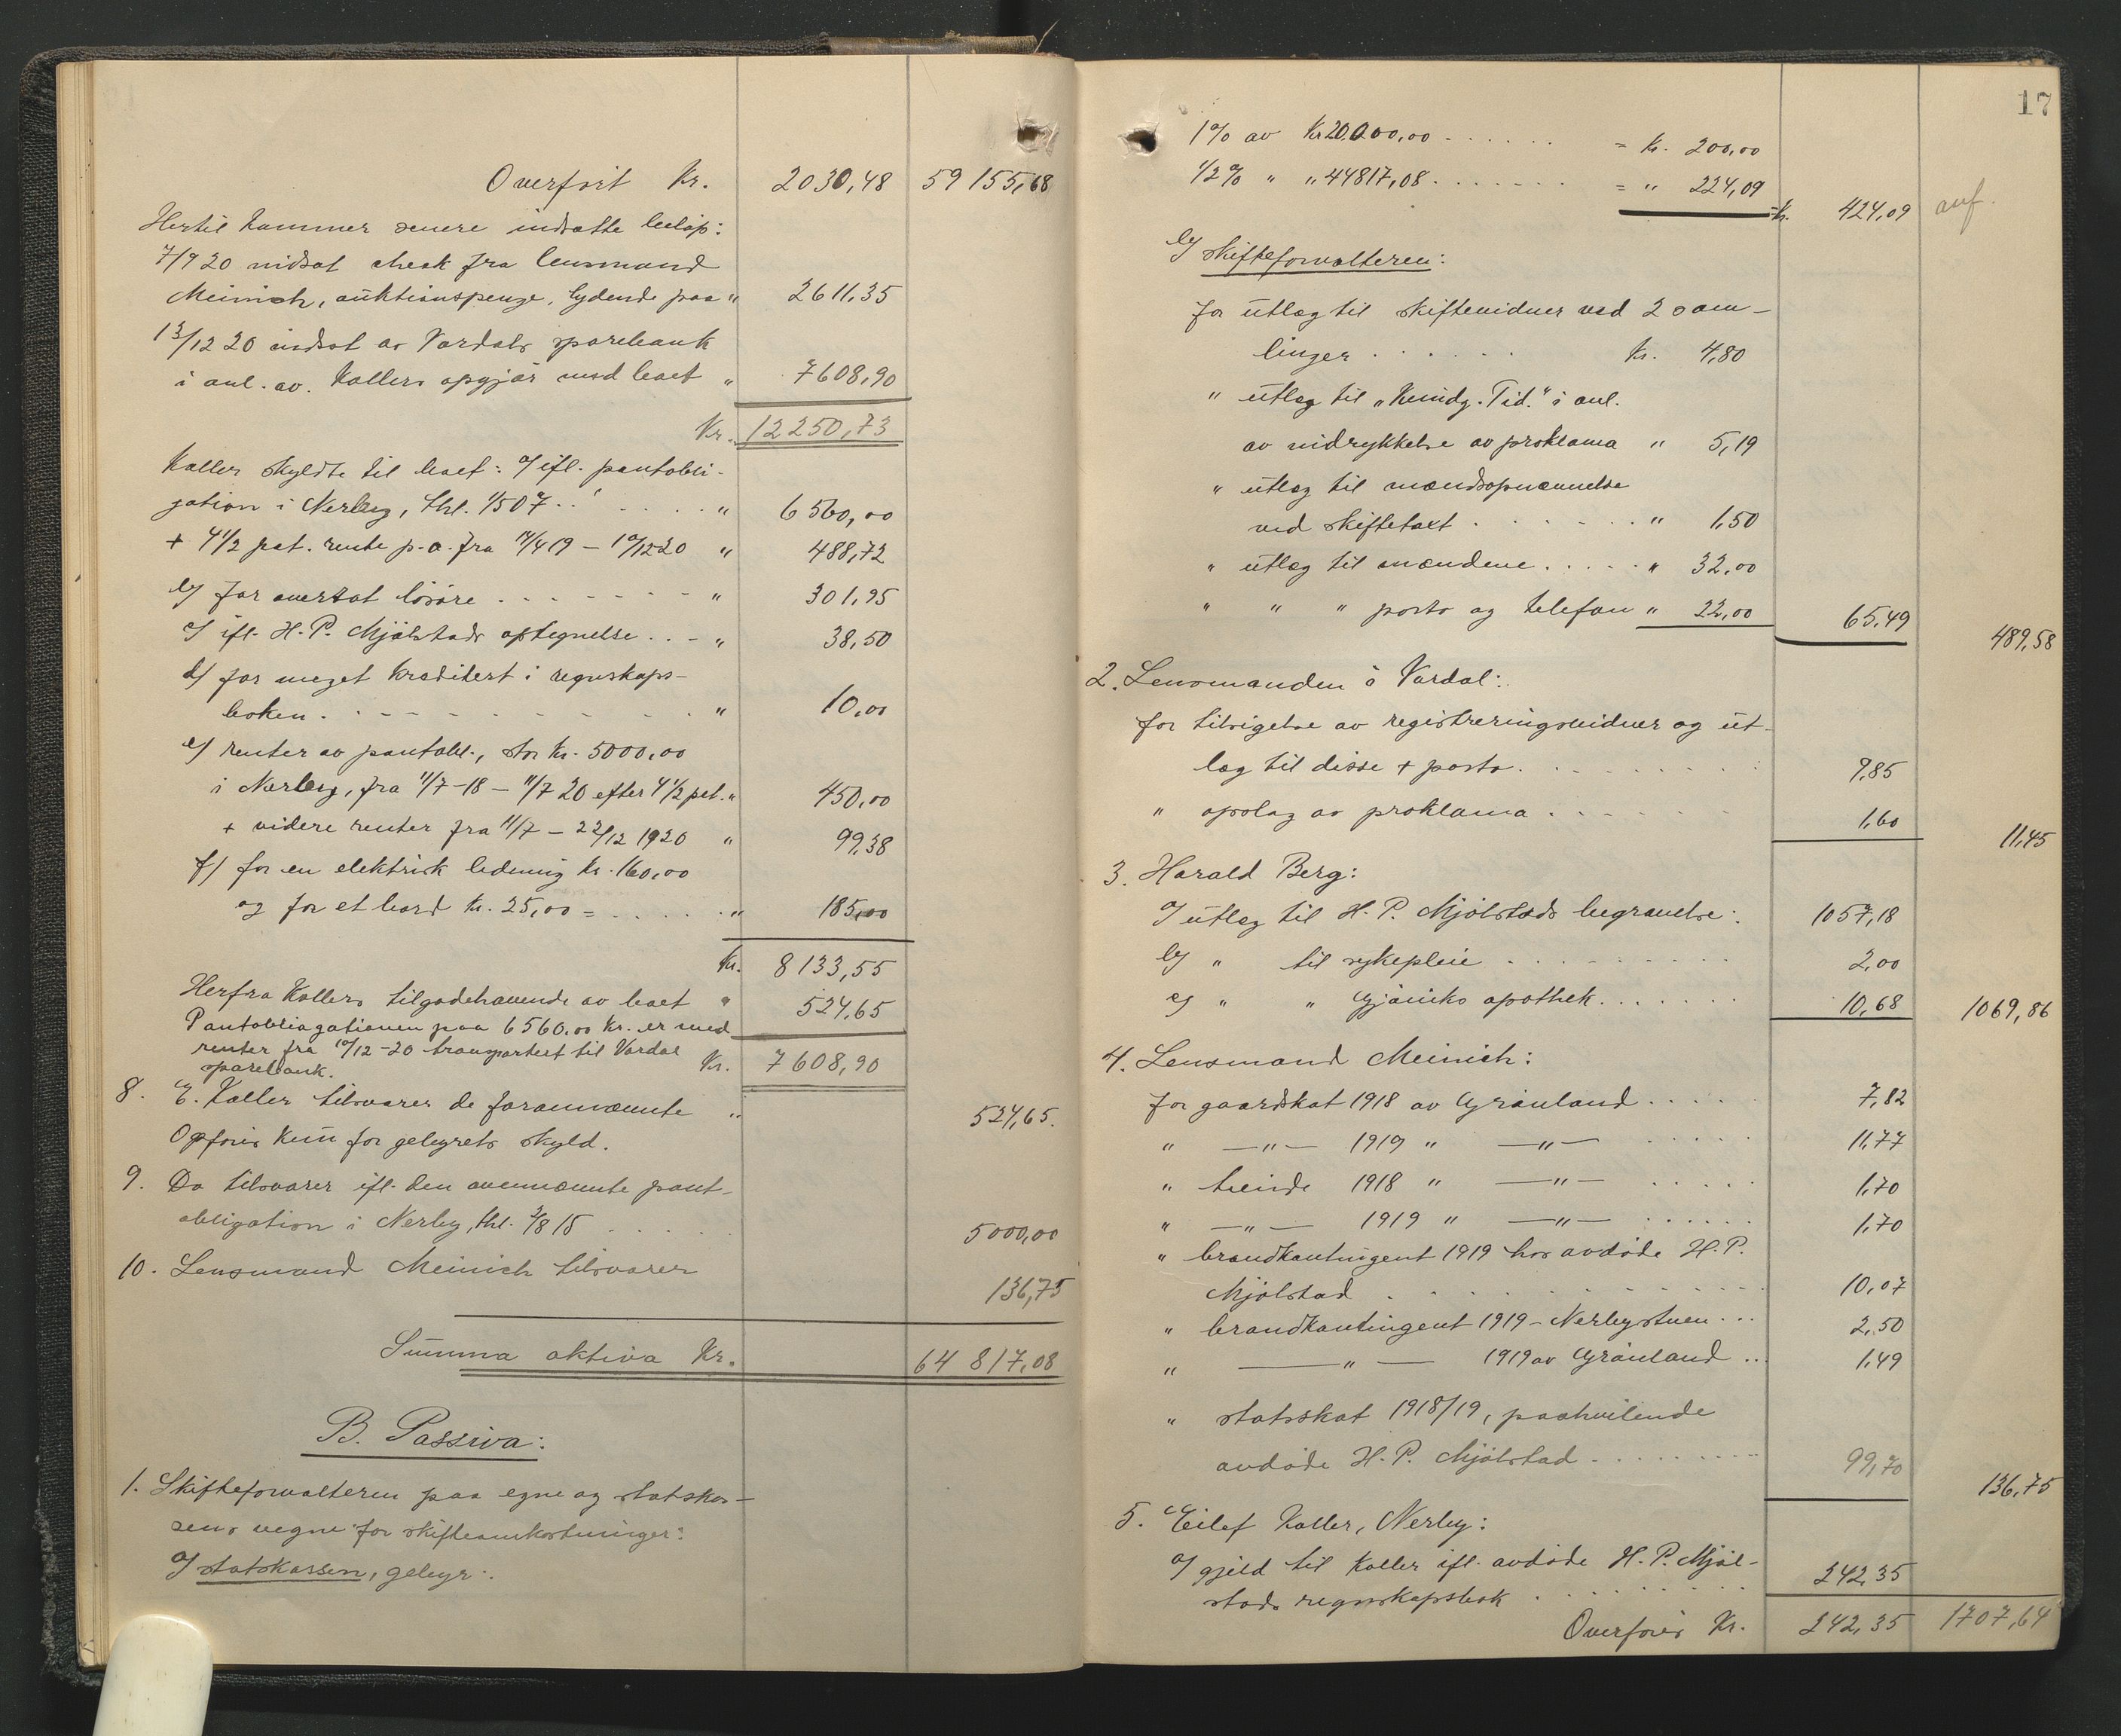 Overført Kr. 2030,48 59 155,68
Hertil kommer senere indsatte beløp:
7/9 20 indsat check fra lensmand
Meinich, auktionspenge, lydende paa " 2611,35
13/12 20 indsat av Vardals sparebank
i anl. av Kallers opgjør med boet " 7608,90
Kr. 12 250,73
Koller skyldte til boet: a/ ifl. pantobli-
gation i Nerby, thl. 1/5 07 . . " 6560,00
+ 4 1/2 pct. rente p.a. fra 14/4 19 – 10/12 20 " 488,72
b/ for overtat løsøre . . . " 301,95
c/ ifl. H. P. Mjølstads optegnelse . . " 38,50
d/ for meget krediteret i regnskaps-
boken . . . " 10,00
e/ renter av pantobl., stor kr. 5000,00
i Nerby, fra 11/7 -18 – 11/7 20 efter 4 1/2 pct. " 450,00
+ videre renter fra 11/7 – 22/12 1920 " 99,38
f/ for en elektrisk ledning kr. 160,00
og for et bord kr. 25,00 = . . . " 185,00
Kr. 8133,55
Herfra Kollers tilgodehavende av boet " 524,65
Pantobligationen paa 6560,00 kr. er med
renter fra 10/12 -20 transportert til Vardal
sparebank. Kr. 7608,90
8. E. Koller tilsvarer de forannævnte " 524,65.
Opføres kun for gebyrets skyld.
9. Do tilsvarer ifl. den ovennævnte pant-
obligation i Nerby, thl. 3/8 15 . . . 5000,00
10. Lensmand Meinich tilsvarer 136,75
Summa aktiva Kr. 64 817,08
B. Passiva:
1. Skifteforvalteren paa egne og statskas-
sens vegne for skifteomkostninger:
a/ statskassen, gebyr:
17
1% av Kr 20.000,00 . . . = Kr. 200,00
1/2% " " 44817,08 . . . = " 224,09
Kr. 424,09 anf.
b/ skifteforvalteren:
for utlæg til skiftevidner ved 2 sam-
linger . . . Kr. 4,80
" utlæg til "Kundg. Tid." i anl.
av indrykkelse av proklama " 5,19
" utlæg til mændsopnævnelse
ved skiftetaxt . . . " 1,50
" utlæg til mændene . . . " 32,00
" " " porto og telefon " 22,00 65,49 489,58
2. Lensmanden i Vardal:
for tilsigelse av registreringsvidner og ut-
læg til disse + porto . . . 9,85
" opslag av proklama . . . 1,60 11,45
3. Harald Berg:
a/ utlæg til H. P. Mjølstads begravelse: 1057,18
b/ " til sykepleie . . . 2,00
c/ " " Gjøviks apothek . . . 10,68 1069,86
4. Lensmand Meinich:
for gaardskat 1918 av Grønland . . . 7,82
" —"— 1919 " —"— . . . 11,77
" tiende 1918 " —"— . . . 1,70
" —"— 1919 " —"— . . . 1,70
" brandkontingent 1919 hos avdøde H. P.
Mjølstad . . . 10,07
" brandkontingent 1919 – Nerbystuen . . . 2,50
" —"— 1919 av Grønland . . 1,49
" statsskat 1918/19, paahvilende
avdøde H. P. Mjølstad . . . 99,70 136,75
5. Eilef Koller, Nerby:
a/ gjeld til Koller ifl. avdøde H. P. Mjøl-
stads regnskapsbok . . . 242,35
Overføres Kr. 242,35 1707,64